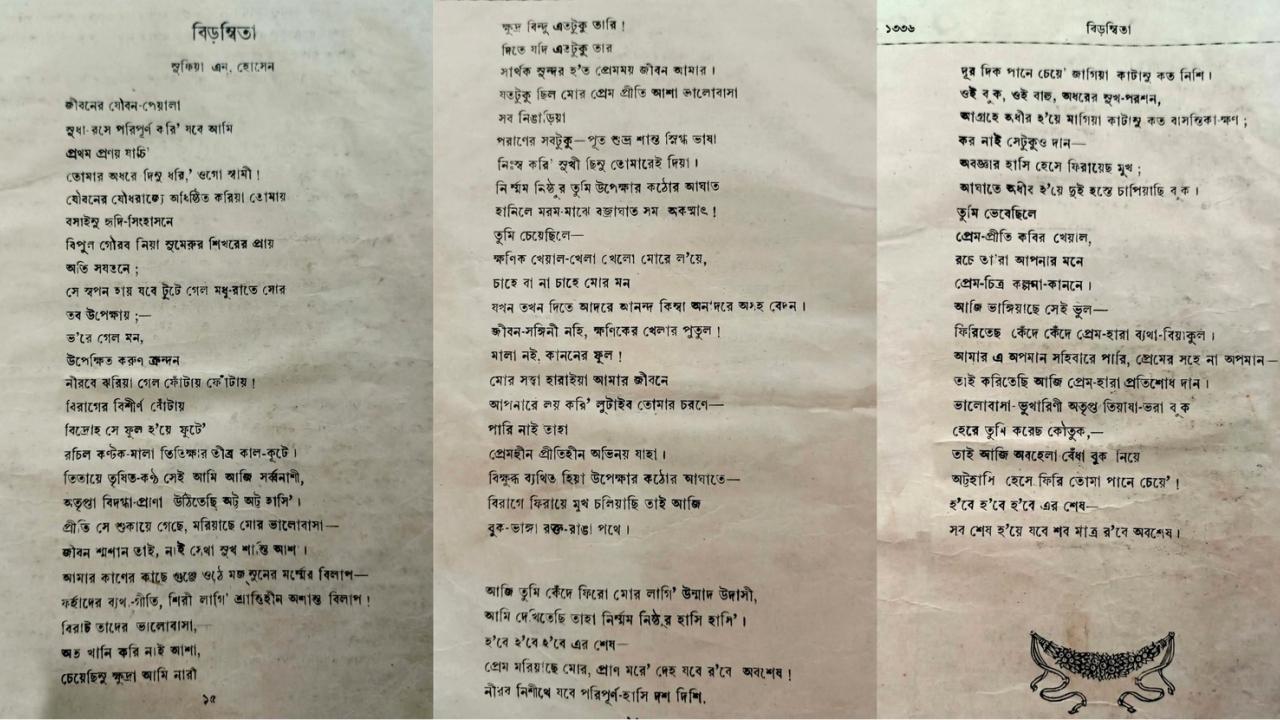 বিড়ম্বিতা
সুফিয়া এন, হোসেন
জীবনের যৌবন-পেয়ালা
সুধা-রসে পরিপূর্ণ করি' যবে আমি
প্রথম প্রণয় যাচি'
তোমার অধরে দিনু ধরি,' ওগো স্বামী !
যৌবনের যৌবরাজ্যে অধিষ্ঠিত করিয়া তোমায়
বসাইনু হৃদি-সিংহাসনে
বিপুল গৌরব নিয়া সুমেরুর শিখরের প্রায়
অতি সযতনে ;
সে স্বপন হায় যবে টুটে গেল মধু-রাতে মোর
তব উপেক্ষায় ;—
ভ'রে গেল মন,
উপেক্ষিত করুণ ক্রন্দন
নীরবে ঝরিয়া গেল ফোঁটায় ফোঁটায় !
বিরাগের বিশীর্ণ বোঁটায়
বিদ্রোহ সে ফুল হ'য়ে ফুটে'
রচিল কণ্টক-মালা তিতিক্ষার তীব্র কাল-কূটে ।
তিতায়ে তৃষিত-কণ্ঠ সেই আমি আজি সর্ব্বনাশী,
অতৃপ্তা বিদগ্ধা-প্রাণা উঠিতেছি অট্ট অট্ট হাসি' ।
প্রীতি সে শুকায়ে গেছে, মরিয়াছে মোর ভালোবাসা—
জীবন শ্মশান তাই, নাই সেথা সুখ শান্তি আশা ।
আমার কাণের কাছে গুঞ্জে ওঠে মজনুনের মর্ম্মের বিলাপ—
ফর্হাদের ব্যথা-গীতি, শিরী লাগি' শ্রান্তিহীন অশান্ত বিলাপ !
বিরাট তাদের ভালোবাসা,
অত খানি করি নাই আশা,
চেয়েছিনু ক্ষুদ্রা আমি নারী
১৫
ক্ষুদ্র বিন্দু এতটুকু তারি !
দিতে যদি এতটুকু তার
সার্থক সুন্দর হ'ত প্রেমময় জীবন আমার ।
যতটুকু ছিল মোর প্রেম প্রীতি আশা ভালোবাসা
সব নিঙাড়িয়া
পরাণের সবটুকু—পূত শুভ্র শান্ত স্নিগ্ধ ভাষা
নিঃস্ব করি' সুখী ছিনু তোমারেই দিয়া ।
নির্ম্মম নিষ্ঠুর তুমি উপেক্ষার কঠোর আঘাত
হানিলে মরম-মাঝে বজ্রাঘাত সম অকস্মাৎ !
তুমি চেয়েছিলে—
ক্ষণিক খেয়াল-খেলা খেলো মোরে ল'য়ে,
চাহে বা না চাহে মোর মন
যখন তখন দিতে আদরে আনন্দ কিম্বা অনাদরে অসহ বেদন ।
জীবন-সঙ্গিনী নহি, ক্ষণিকের খেলার পুতুল !
মালা নই, কাননের ফুল !
মোর সত্বা হারাইয়া আমার জীবনে
আপনারে লয় করি' লুটাইব তোমার চরণে—
পারি নাই তাহা
প্রেমহীন প্রীতিহীন অভিনয় যাহা ।
বিক্ষুব্ধ ব্যথিত হিয়া উপেক্ষার কঠোর আঘাতে—
বিরাগে ফিরায়ে মুখ চলিয়াছি তাই আজি
বুক-ভাঙ্গা রক্ত-রাঙা পথে ।
আজি তুমি কেঁদে ফিরো মোর লাগি' উন্মাদ উদাসী,
আমি দেখিতেছি তাহা নির্ম্মম নিষ্ঠুর হাসি হাসি' ।
হ'বে হ'বে হ'বে এর শেষ—
প্রেম মরিয়াছে মোর, প্রাণ মরে' দেহ যবে র'বে অবশেষ !
নীরব নিশীথে যবে পরিপূর্ণ-হাসি দশ দিশি,
১৩৩৬
বিড়ম্বিতা
দূর দিক পানে চেয়ে' জাগিয়া কাটানু কত নিশি ।
ওই বুক, ওই বাহু, অধরের সুখ-পরশন,
আগ্রহে অধীর হ'য়ে মাগিয়া কাটানু কত বাসন্তিকা-ক্ষণ ;
কর নাই সেটুকুও দান—
অবজ্ঞার হাসি হেসে ফিরায়েছ মুখ ;
আঘাতে অধীর হ'য়ে দুই হস্তে চাপিয়াছি বুক ।
তুমি ভেবেছিলে
প্রেম-প্রীতি কবির খেয়াল,
রচে তা'রা আপনার মনে
প্রেম-চিত্র কল্পনা-কাননে ।
আজি ভাঙ্গিয়াছে সেই ভুল—
ফিরিতেছ কেঁদে কেঁদে প্রেম-হারা ব্যথা-বিয়াকুল ।
আমার এ অপমান সহিবারে পারি, প্রেমের সহে না অপমান—
তাই করিতেছি আজি প্রেম-হারা প্রতিশোধ দান ।
ভালোবাসা-ভুখারিণী অতৃপ্ত তিয়াষা-ভরা বুক
হেরে তুমি করেছ কৌতুক,—
তাই আজি অবহেলা বেঁধা বুক নিয়ে
অট্টহাসি হেসে ফিরি তোমা পানে চেয়ে' !
হ'বে হ'বে হ'বে এর শেষ—
সব শেষ হ'য়ে যবে শব মাত্র র'বে অবশেষ ।